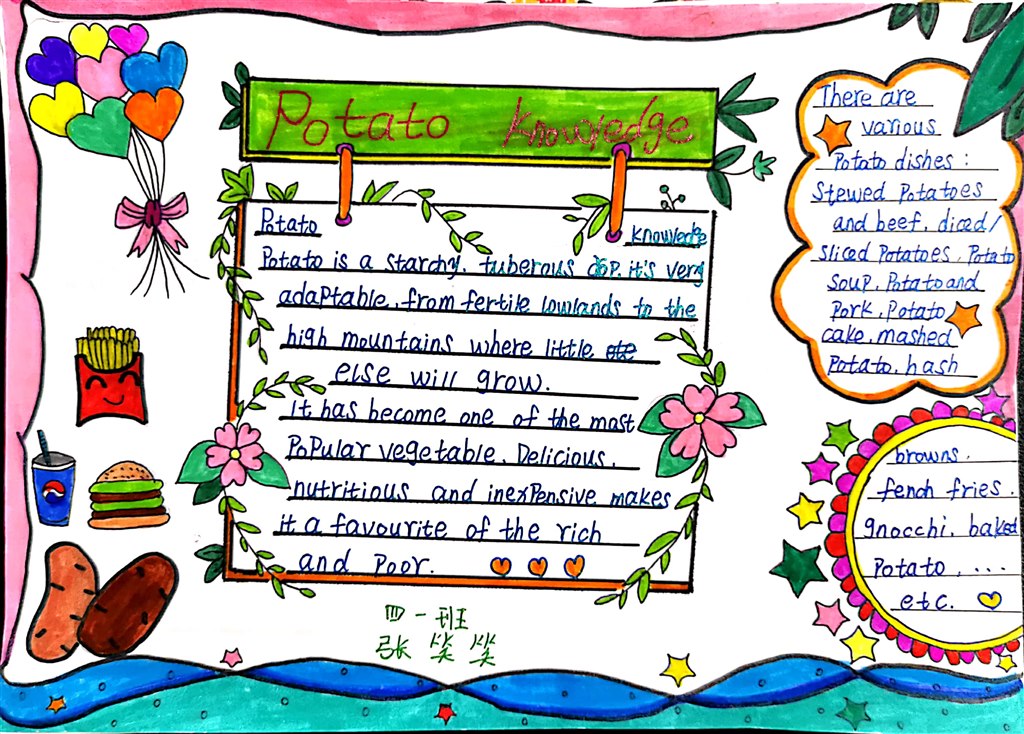 Potato Knowledge
Potato
Knowledge
Potato is a starchy, tuberous crop. it's very
adaptable, from fertile lowlands to the
high mountains where little
else will grow.
It has become one of the most
Popular vegetable. Delicious,
nutritious and inexpensive makes
it a favourite of the rich
and Poor.
四一班
张笑笑
There are
various
Potato dishes:
Stewed Potatoes
and beef, diced/
sliced Potatoes, Potato
soup, Potato and
Pork, Potato
cake, mashed
Potato, hash
browns,
fench fries,
gnocchi, baked
Potato, ...
etc.